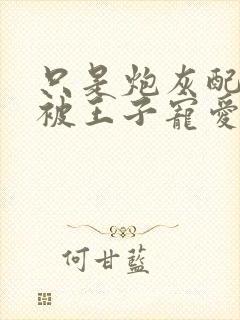 只是炮灰配
被王子寵愛
何甘藍